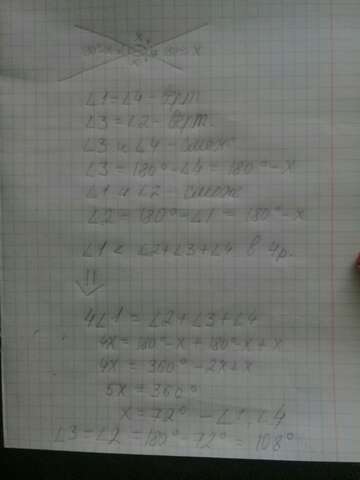 ∠1=∠4 - верт.
∠3=∠2 - верт.
∠3 и ∠4 - смеж
∠3=180°-∠4=180°-x
∠1 и ∠2 - смеж
∠2=180°-∠1=180°-x
∠1 < ∠2+∠3+∠4 в 4р.
⇓
4∠1=∠2+∠3+∠4
4x=180°-x+180°-x+x
4x=360°-2x+x
5x=360°
x=72° - ∠1, ∠4
∠3=∠2=180°-72°=108°